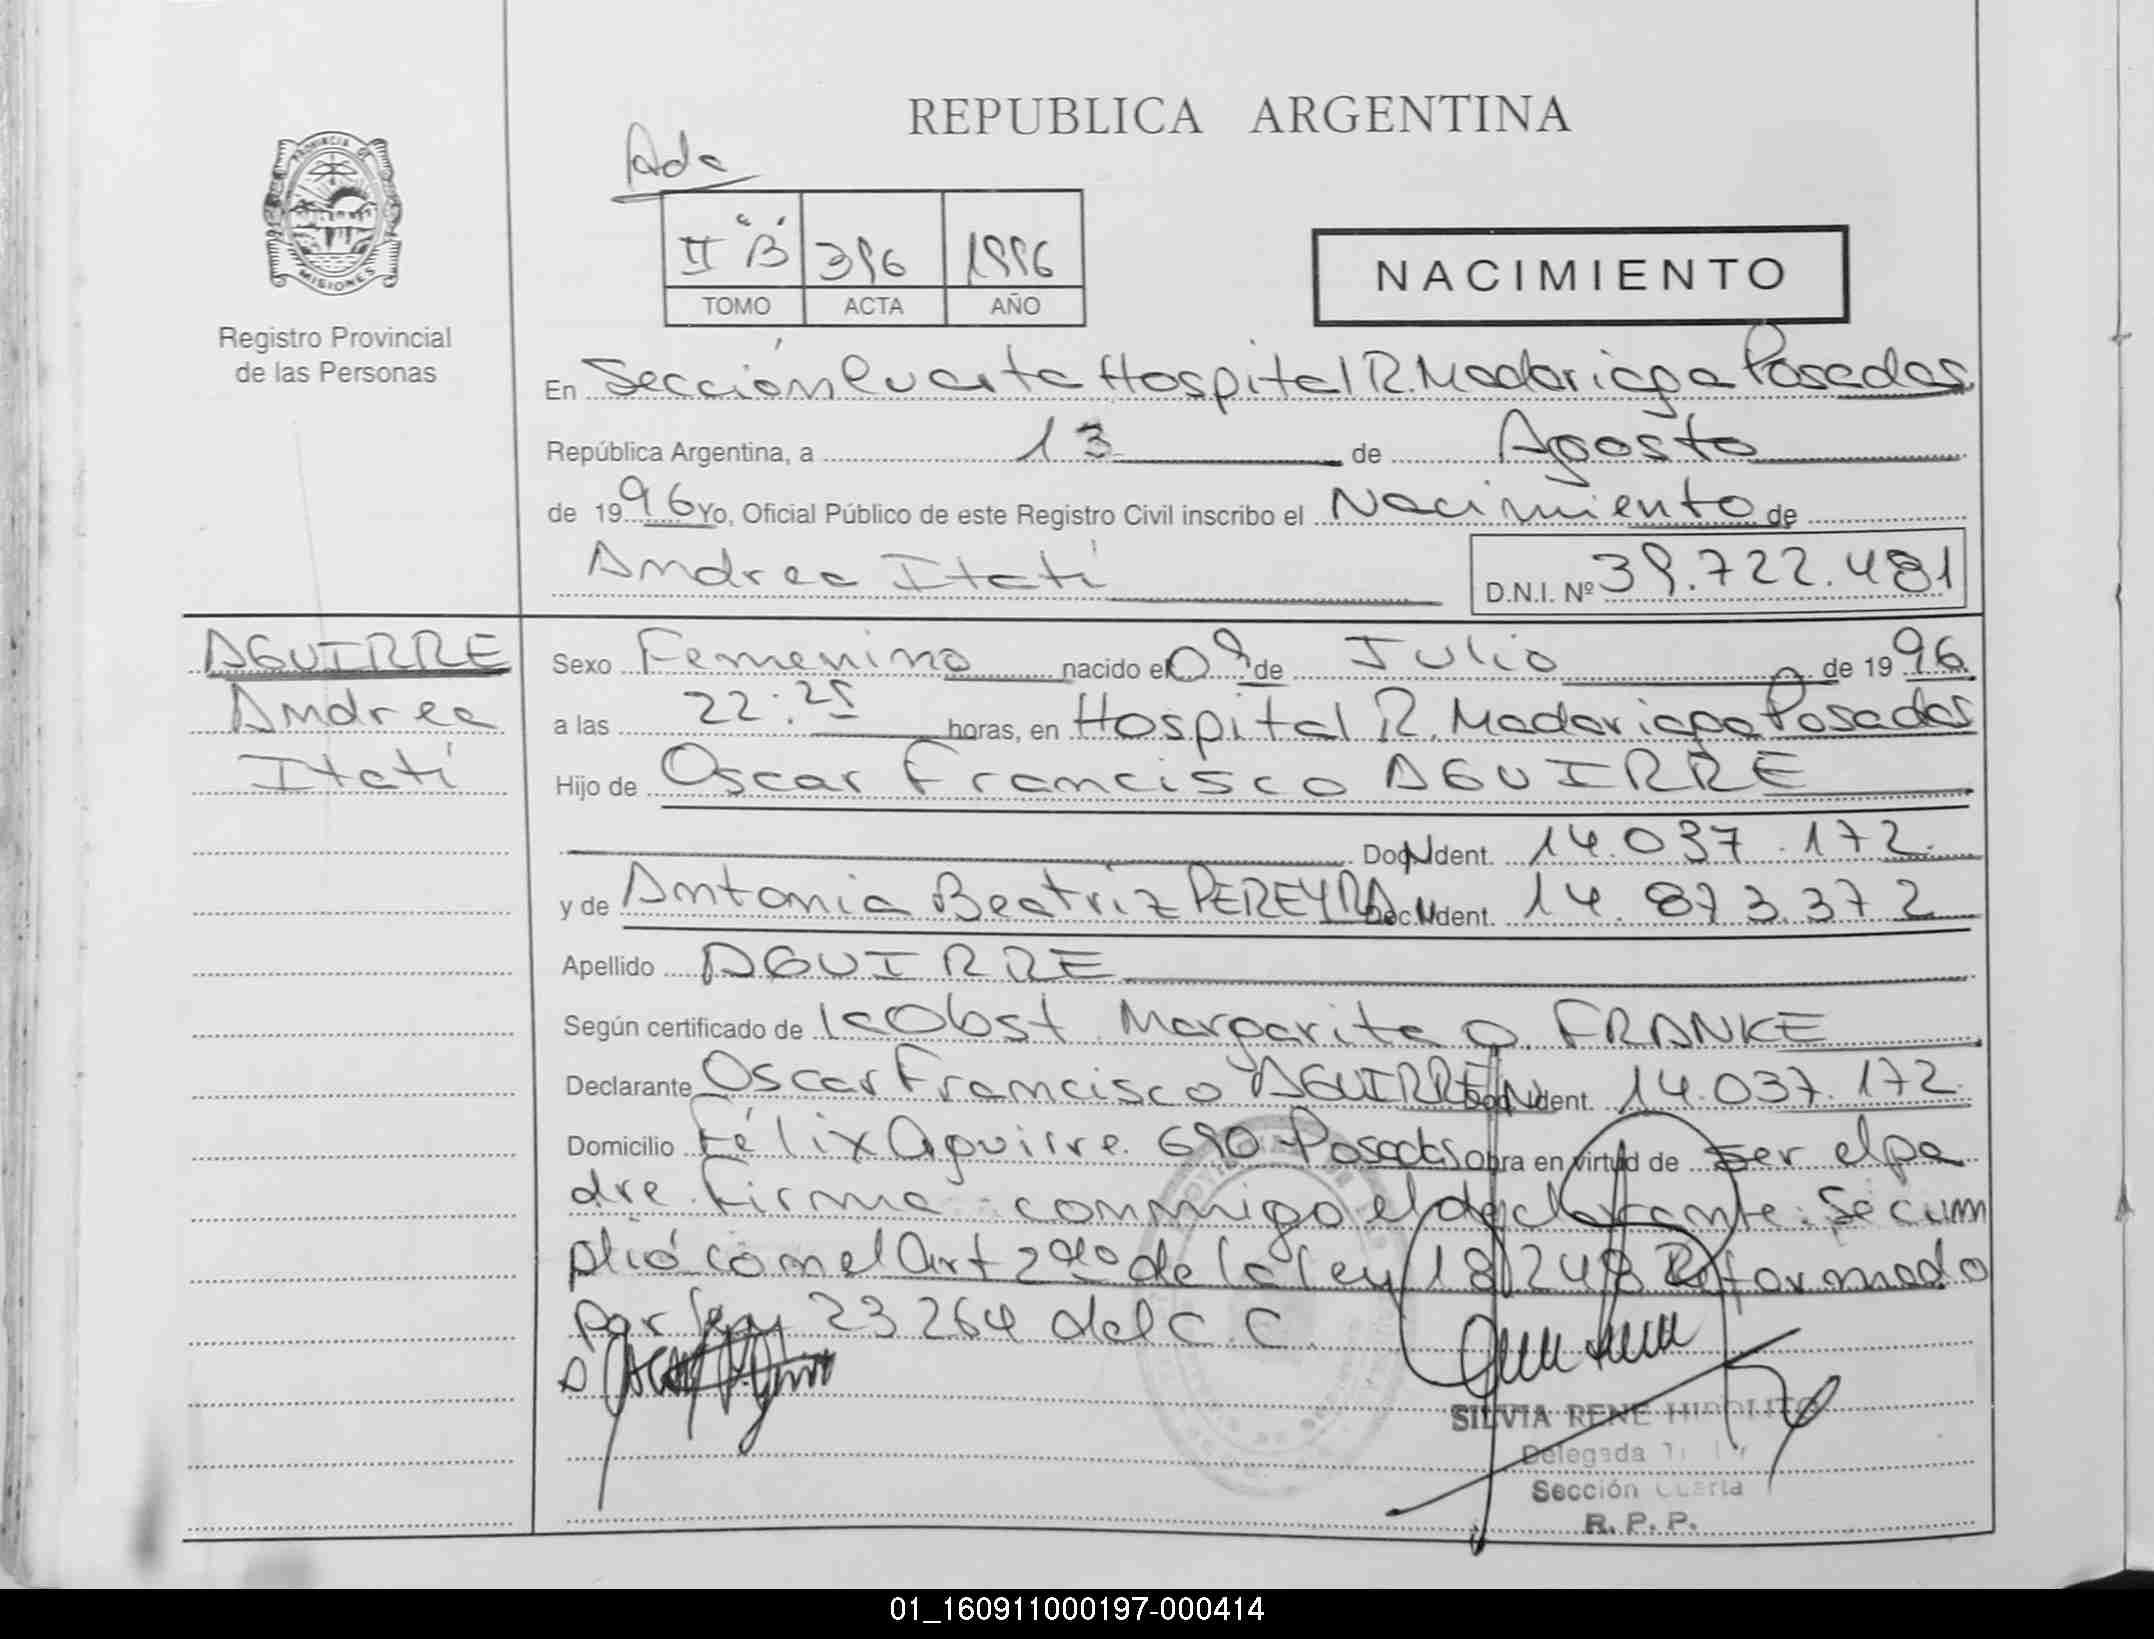 REPUBLICA ARGENTINA
PROVINCIA DE
MISIONES
Registro Provincial
de las Personas
II "B" 396 1996
TOMO ACTA AÑO
NACIMIENTO
En Sección Cuarta Hospital R. Madariaga Posadas
República Argentina, a 13 de Agosto
de 1996 Yo, Oficial Público de este Registro Civil inscribo el Nacimiento de
Andrea Itatí D.N.I. Nº 39.722.481
AGUIRRE
Andrea
Itatí
Sexo Femenino nacido el 09 de Julio de 1996
a las 22:25 horas, en Hospital R. Madariaga Posadas
Hijo de Oscar Francisco AGUIRRE
Doc. Ident. 14.037.172
y de Antonia Beatriz PEREYRA Doc. Ident. 14.873.372
Apellido AGUIRRE
Según certificado de la Obst. Margarita O. FRANKE
Declarante Oscar Francisco AGUIRRE Doc. Ident. 14.037.172
Domicilio Félix Aguirre 690 Posadas Obra en virtud de ser el pa
dre. Firma conmigo el declarante. Se cum
plió con el Art 2do de la ley 18.248 Reformado
por Ley 23264 del C.C.
SILVIA RENE HIPOLITO
Delegada
Sección Cuarta
R. P. P.
01_160911000197-000414